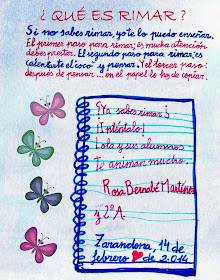 ¿QUÉ ES RIMAR?
Si no sabes rimar, yo te lo puedo enseñar.
El primer paso para rimar, es mucha atención
debes prestar. El segundo paso para rimar, es
calentarte el coco y pensar. Y el tercer paso:
después de pensar... en el papel lo he de copiar.
¡Ya sabes rimar!
¡Apúntalo!
Lola y sus alumnos
te animan mucho.
Rosa Bernabé Martínez
y 2ºA
Zarandona, 14 de
febrero de 2.014